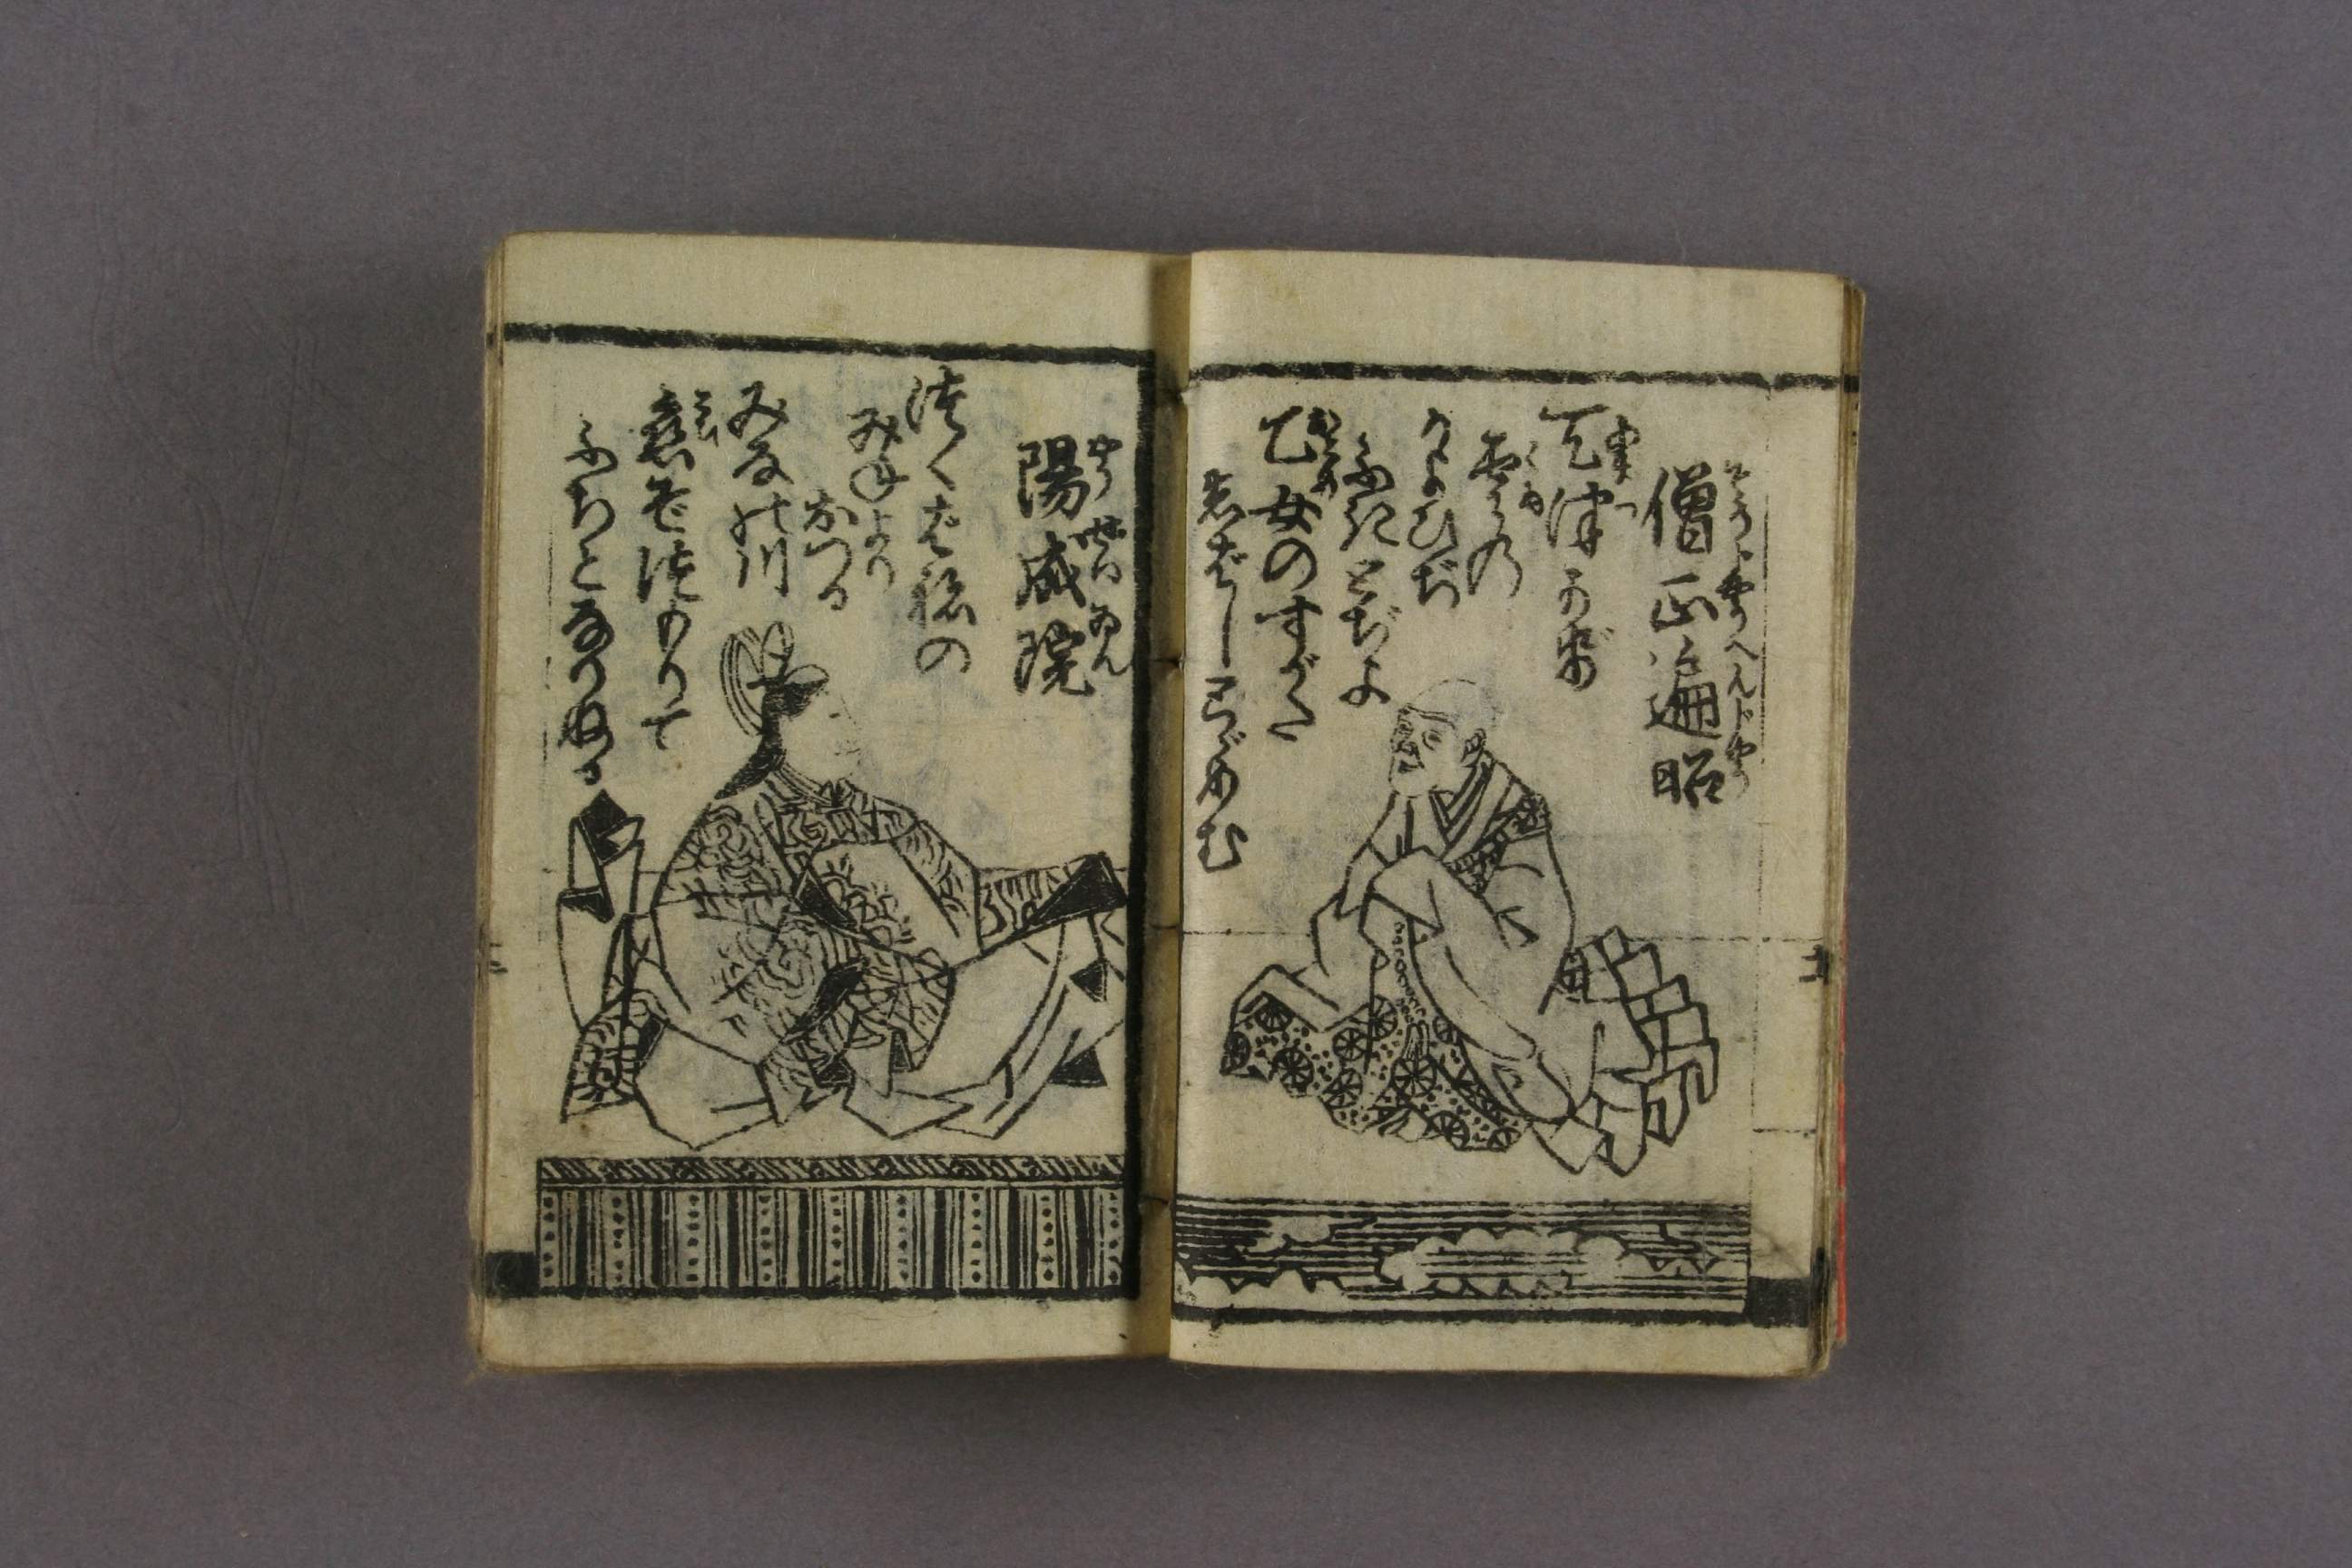 そうじやうへんじやう
僧正遍昭
あまつ
天津かぜ
くも
雲の
かよひぢ
ふきとぢよ
をとめ
乙女のすがた
しばしとゞめむ
やうぜいゐん
陽成院
つくばねの
みねより
おつる
みなの川
こひ
恋ぞつもりて
ふちとなりぬる